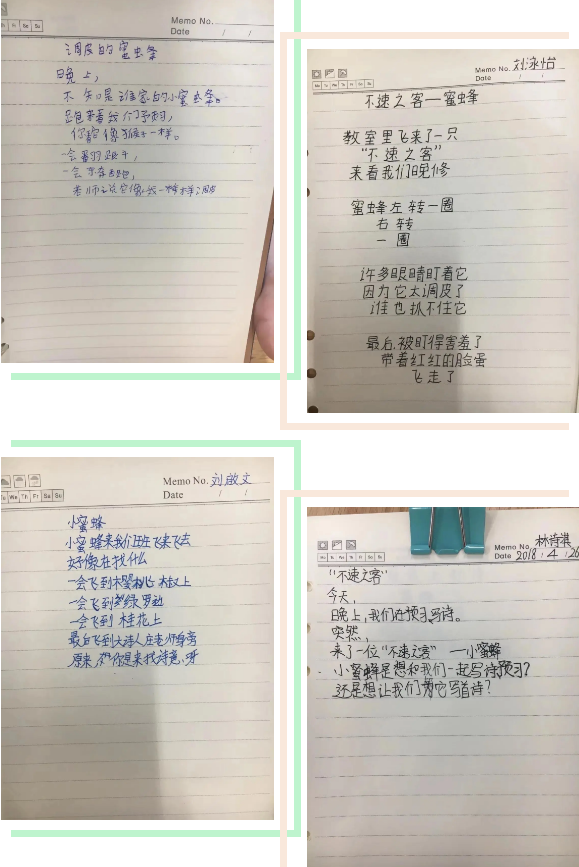 Fr Sa Su
Memo No.
Date / /
调皮的蜜虫条
晚上，
不知是谁家的小蜜虫条。
跑来看我们预习，
你像猴子一样。
一会
一会
老师说它像我一样调皮
Memo No. 刘泳怡
Mo Tu We Th Fr Sa Su
Date / /
不速之客—蜜蜂
教室里飞来了一只
“不速之客”
来看我们晚修
蜜蜂左转一圈
右转
一圈
许多眼睛盯着它
因为它太调皮了
谁也抓不住它
最后，被盯得害羞了
带着红红的脸蛋
飞走了
Memo No. 刘啟文
Tu We Th Fr Sa Su
Date / /
小蜜蜂
小蜜蜂来我们班飞来飞去
好像在找什么
一会飞到樱桃木叔上
一会飞到绿罗边
一会飞到桂花上
最后飞到大诗人庄老师身旁
原来，你是来找诗意呀
Memo No. 林诗淇
Mo Tu We Th Fr Sa Su
Date 2018 / 4 / 26
“不速之客”
今天，
晚上，我们在预习写诗。
突然，
来了一位“不速之客”—小蜜蜂
小蜜蜂是想和我们一起写诗预习？
还是想让我们为它写首诗？